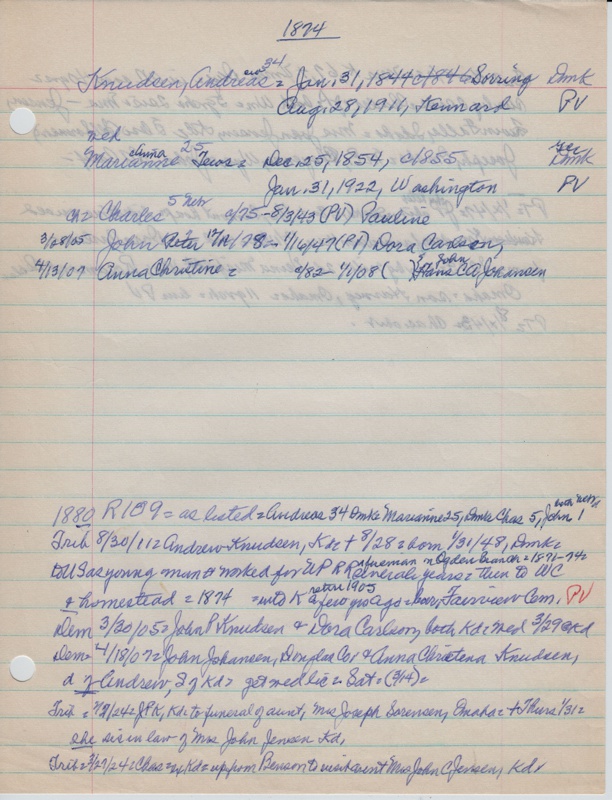 1874
34
Knudsen, Andreas = Jan. 31, 1844 c1846 Sorring Dmk
Aug. 28, 1911, Kennard PV
med
Marianne Anna 25 = Dec. 25, 1854, c1855, Dmk
Jan. 31, 1922, Washington PV
ch = Charles 5 Nebr c/75 - 8/3/43 (PV) Pauline
3/28/05 John Peter 12/12/78 - 1/16/47 (PV) Dora Carlson,
4/13/07 Anna Christine = c/82 - 1/1/08 ( John Hans CA Johansen
1880 R189 = as listed = Andreas 34 Dmk = Marianne 25, Dmk = Chas 5, John 1 both Neb
Trib 8/30/11 = Andrew Knudsen, Kd = + 8/28 = born 1/31/48, Dmk =
to US as young man & worked for UPRR fireman on Ogden branch = 1871-74 =
several years = then to WC
& homestead = 1874 = into K a few yrs ago = retire 1905 bur, Fairview Cem. PV
Dem 3/30/05 = John P Knudsen & Dora Carlson, both Kd = med 3/29 @ Kd
Dem = 4/18/07 = John Johansen, Douglas Co & Anna Christena Knudsen,
d of Andrew, of Kd = get med lic = Sat =
Trib = JPK, Kd = to funeral of aunt, Mrs Joseph Sorensen, Omaha = + Thurs 1/31 =
she sis in law of Mrs John Jensen Kd,
Trib = 3/27/24 = Chas = Kd = up from Benson to visit aunt Mrs John C Jensen, Kd